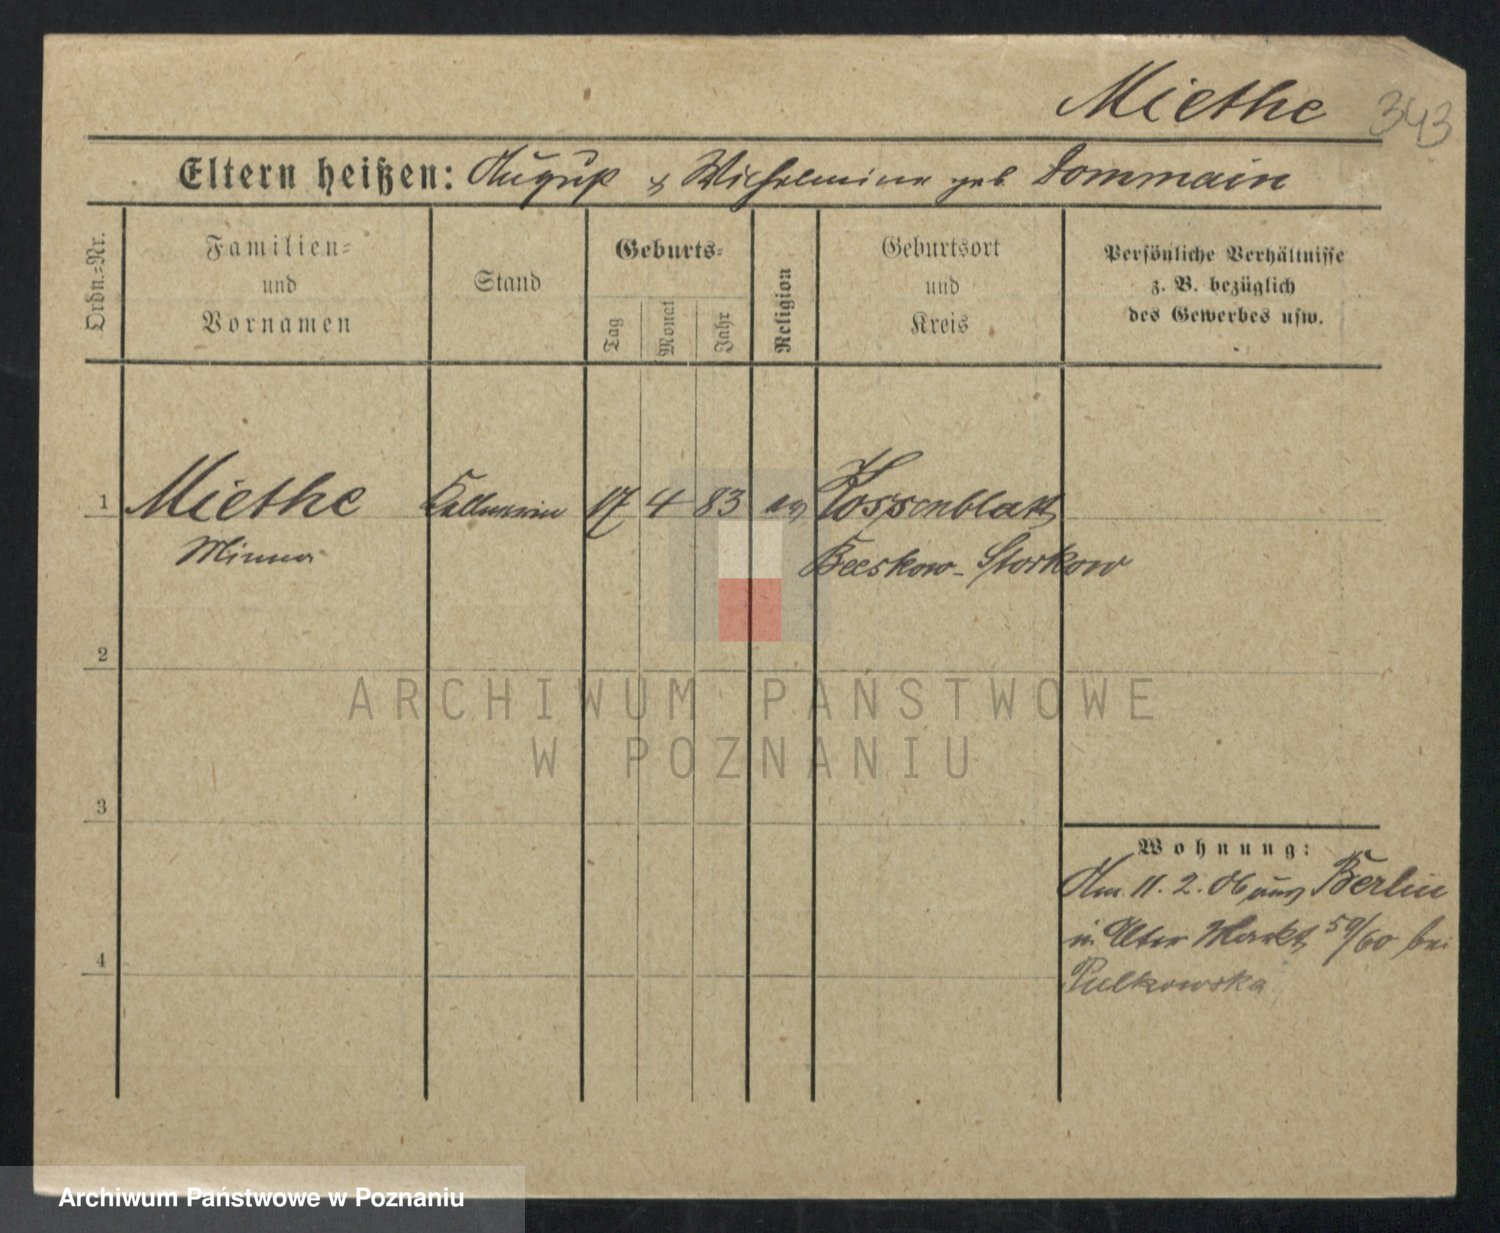 Miethe 343
Eltern heißen: August & Wilhelmine geb. Dommain
Ordn.=Nr.
Familien=
und
Vornamen
Stand
Geburts=
Tag
Monat
Jahr
Religion
Geburtsort
und
Kreis
Persönliche Verhältnisse
z. B. bezüglich
des Gewerbes usw.
1 Miethe Kellnerin 17 4 83 ev Kossenblatt
Minna Beeskow-Storkow
2
3
4
Wohnung:
Am 11.2.06 aus Berlin
in Alter Markt 59/60 bei
Pulkowska
ARCHIWUM PAŃSTWOWE
W POZNANIU
Archiwum Państwowe w Poznaniu